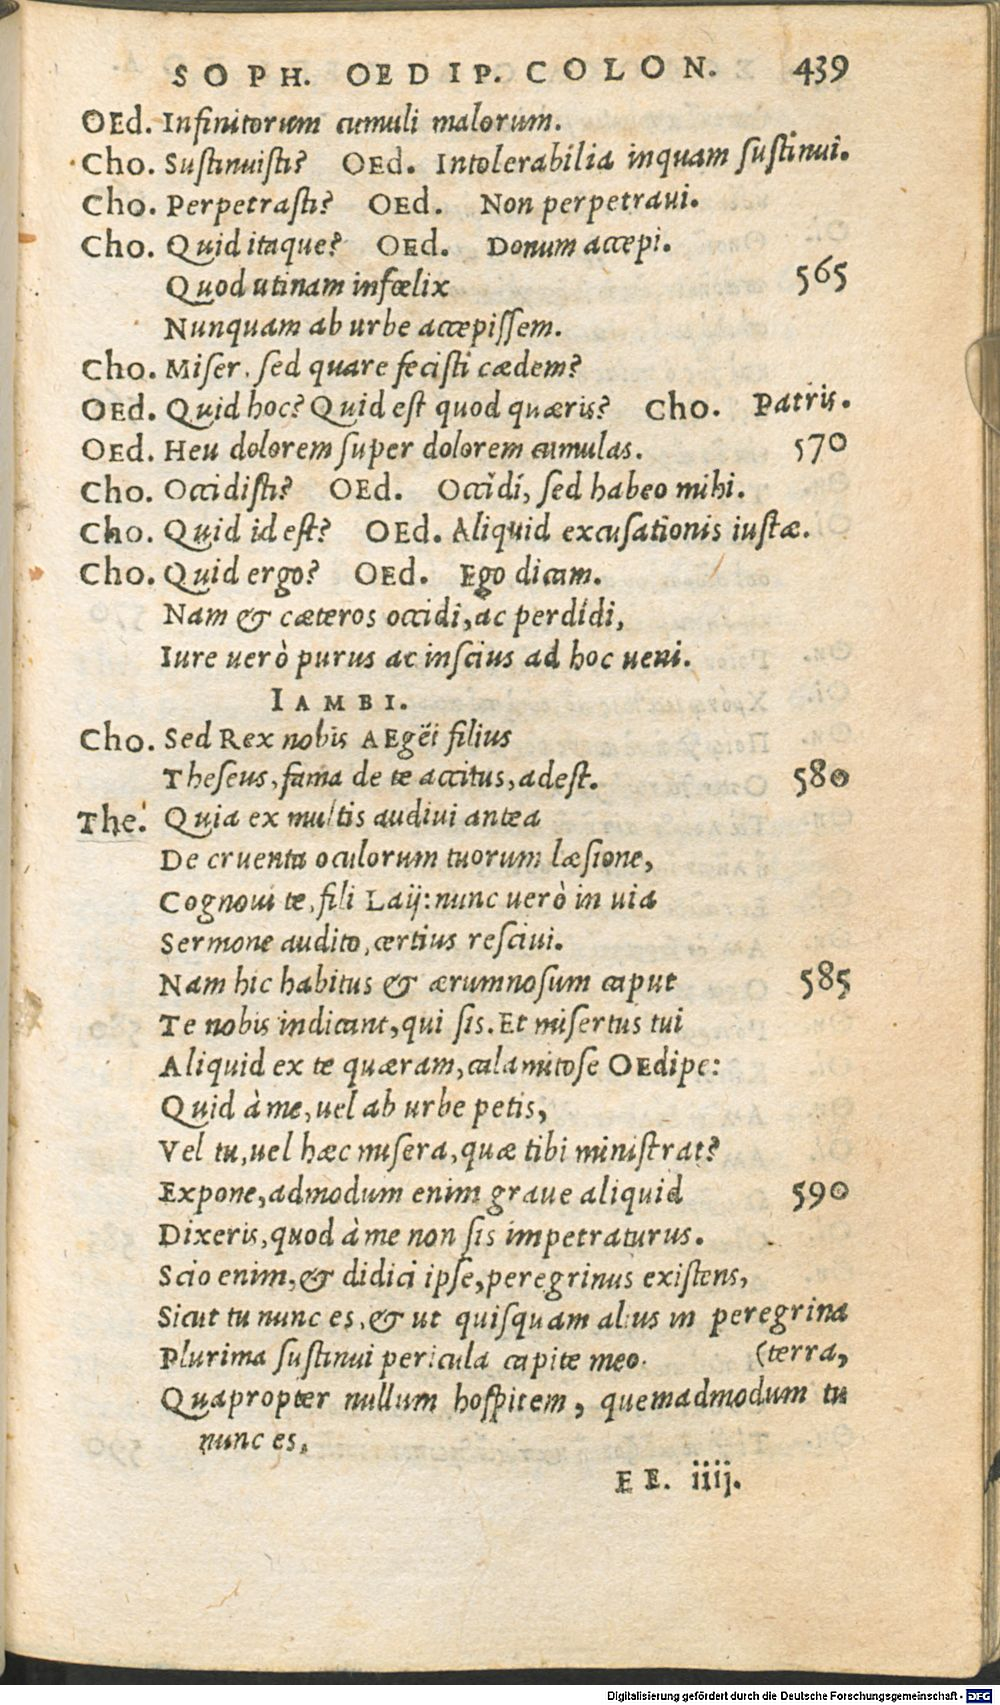 SOPH. OEDIP. COLON. 439
OEd. Infinitorum cumuli malorum.
Cho. Sustinuisti? OEd. Intolerabilia inquam sustinui.
Cho. Perpetrasti? OEd. Non perpetraui.
Cho. Quid itaque? OEd. Donum accepi.
Quod utinam infœlix 565
Nunquam ab urbe accepissem.
Cho. Miser, sed quare fecisti cædem?
OEd. Quid hoc? Quid est quod quæris? Cho. Patris.
OEd. Heu dolorem super dolorem cumulas. 570
Cho. Occidisti? OEd. Occidi, sed habeo mihi.
Cho. Quid id est? OEd. Aliquid excusationis iustæ.
Cho. Quid ergo? OEd. Ego dicam.
Nam & cæteros occidi, ac perdidi,
Iure uerò purus ac inscius ad hoc ueni.
IAMBI.
Cho. Sed Rex nobis AEgëi filius
Theseus, fama de te accitus, adest. 580
The. Quia ex multis audiui antea
De cruenta oculorum tuorum læsione,
Cognoui te, fili Laij: nunc uerò in uia
Sermone audito, certius resciui.
Nam hic habitus & ærumnosum caput 585
Te nobis indicant, qui sis. Et misertus tui
Aliquid ex te quæram, calamitose OEdipe:
Quid à me, uel ab urbe petis,
Vel tu, uel hæc misera, quæ tibi ministrat?
Expone, admodum enim graue aliquid 590
Dixeris, quod à me non sis impetraturus.
Scio enim, & didici ipse, peregrinus existens,
Sicut tu nunc es, & ut quisquam alius in peregrina
Plurima sustinui pericula capite meo. (terra,
Quapropter nullum hospitem, quemadmodum tu
nunc es,
EE. iiij.
Digitalisierung gefördert durch die Deutsche Forschungsgemeinschaft - DFG